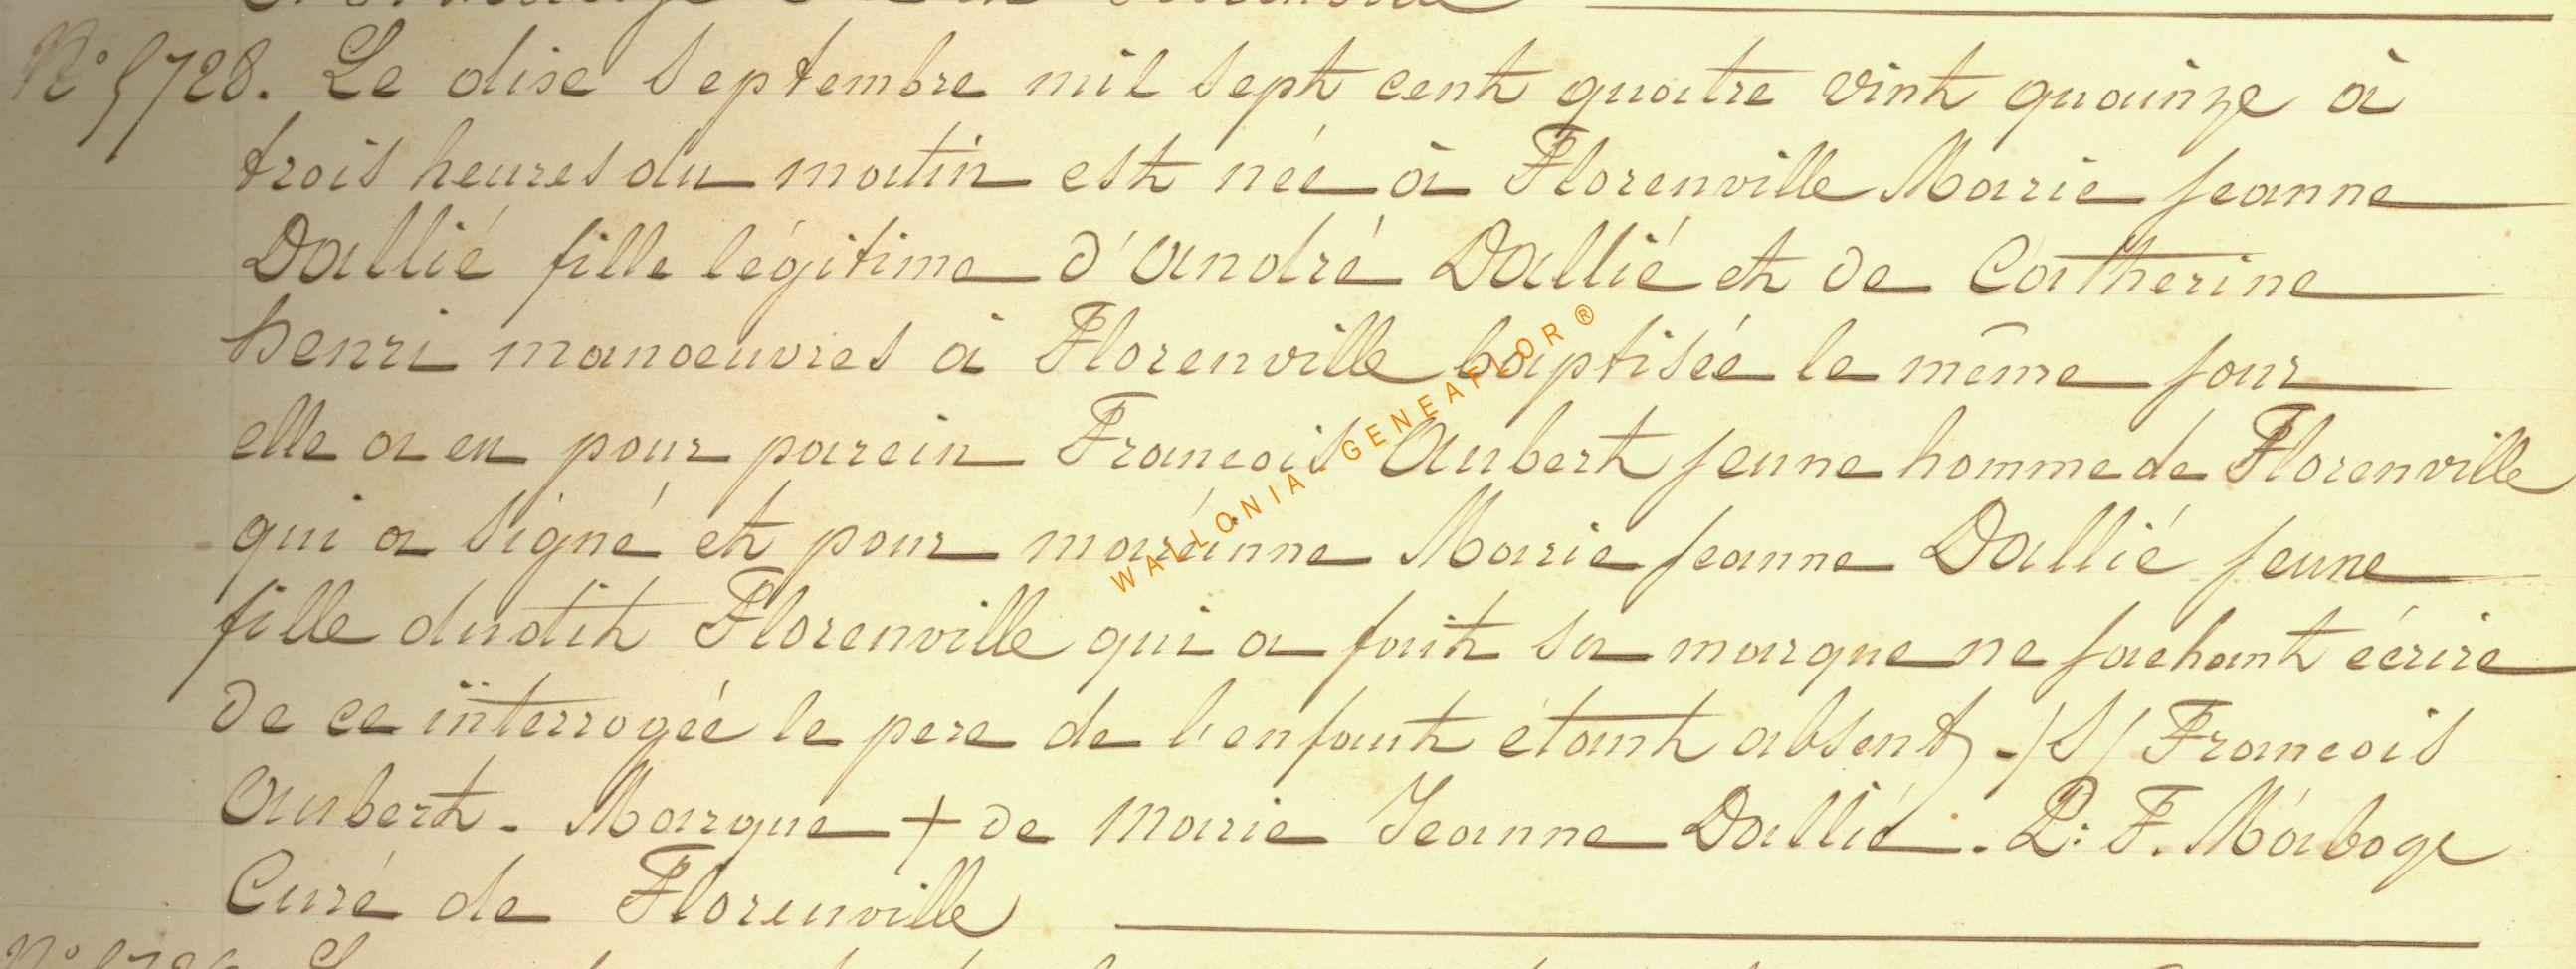 N° 5728. Le dise Septembre mil sept cent quatre vint quainze à
trois heures du matin est née à Florenville Marie Jeanne
Dallié fille légitime d'André Dallié et de Catherine
henri manoeuvres à Florenville baptisée le même jour
elle a eu pour parein Francois Aubert jeune homme de Florenville
qui a signé et pour maréinne Marie Jeanne Dallié jeune
fille dudit Florenville qui a fait sa marque ne sachant écrire
de ce interrogée le pere de l'enfant étant absent. /S/ Francois
Aubert. Marque + de Marie Jeanne Dallié. P: F. Máboge
Curé de Florenville
WALLONIA GENEAFLOR ®